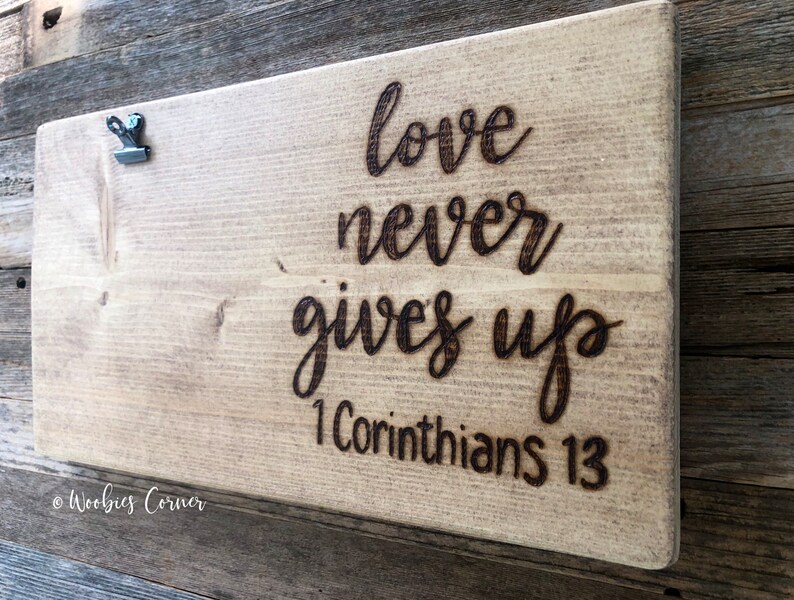 love
never
gives up
1 Corinthians 13
© Woobies Corner